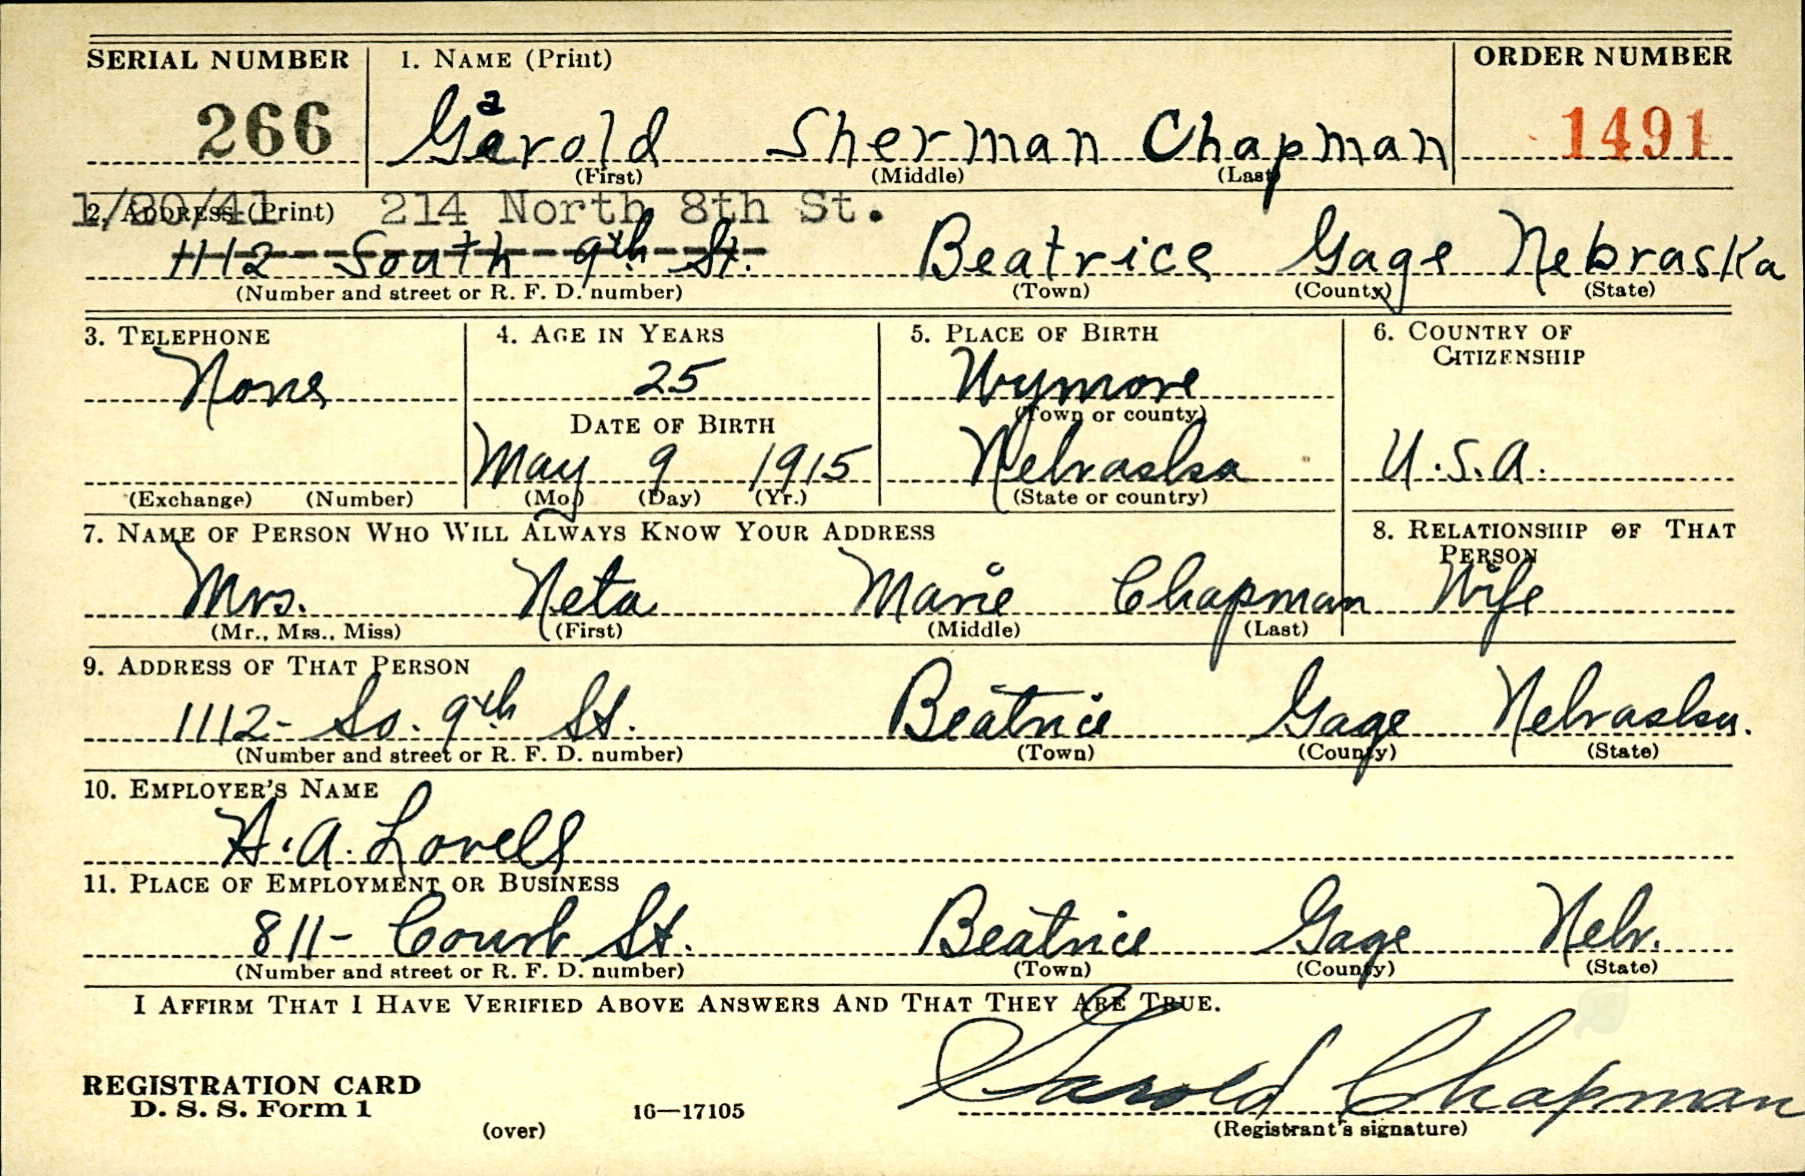 SERIAL NUMBER 1. NAME (Print) ORDER NUMBER
266 Garold Sherman Chapman 1491
(First) (Middle) (Last)
1/20/41 214 North 8th St.
2. ADDRESS (Print)
1112 South 9th St. Beatrice Gage Nebraska
(Number and street or R. F. D. number) (Town) (County) (State)
3. TELEPHONE 4. AGE IN YEARS 5. PLACE OF BIRTH 6. COUNTRY OF CITIZENSHIP
None 25 Wymore
(Town or county)
DATE OF BIRTH
May 9 1915 Nebraska U.S.A.
(Exchange) (Number) (Mo.) (Day) (Yr.) (State or country)
7. NAME OF PERSON WHO WILL ALWAYS KNOW YOUR ADDRESS 8. RELATIONSHIP OF THAT PERSON
Mrs. Neta Marie Chapman Wife
(Mr., Mrs., Miss) (First) (Middle) (Last)
9. ADDRESS OF THAT PERSON
1112- So. 9th St. Beatrice Gage Nebraska.
(Number and street or R. F. D. number) (Town) (County) (State)
10. EMPLOYER'S NAME
H.A. Lovell
11. PLACE OF EMPLOYMENT OR BUSINESS
811- Court St. Beatrice Gage Nebr.
(Number and street or R. F. D. number) (Town) (County) (State)
I AFFIRM THAT I HAVE VERIFIED ABOVE ANSWERS AND THAT THEY ARE TRUE.
Garold Chapman
REGISTRATION CARD
D. S. S. Form 1 16—17105
(over) (Registrant's signature)